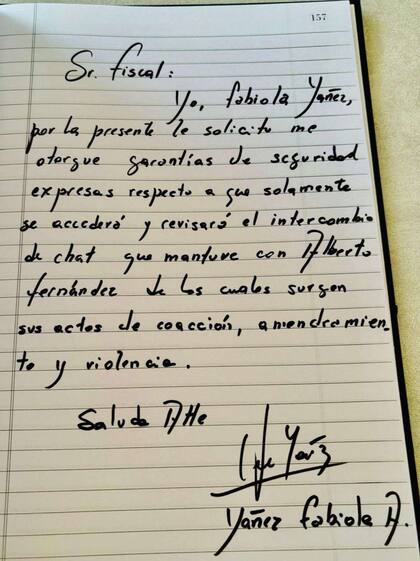 157
Sr. fiscal:
Yo, Fabiola Yañez,
por la presente le solicito me
otorgue garantías de seguridad
expresas respecto a que solamente
se accederá y revisará el intercambio
de chat que mantuve con Alberto
Fernández de los cuales surgen
sus actos de coacción, amendramien-
to y violencia.
Saluda Atte
Yañez
Yáñez Fabiola A.